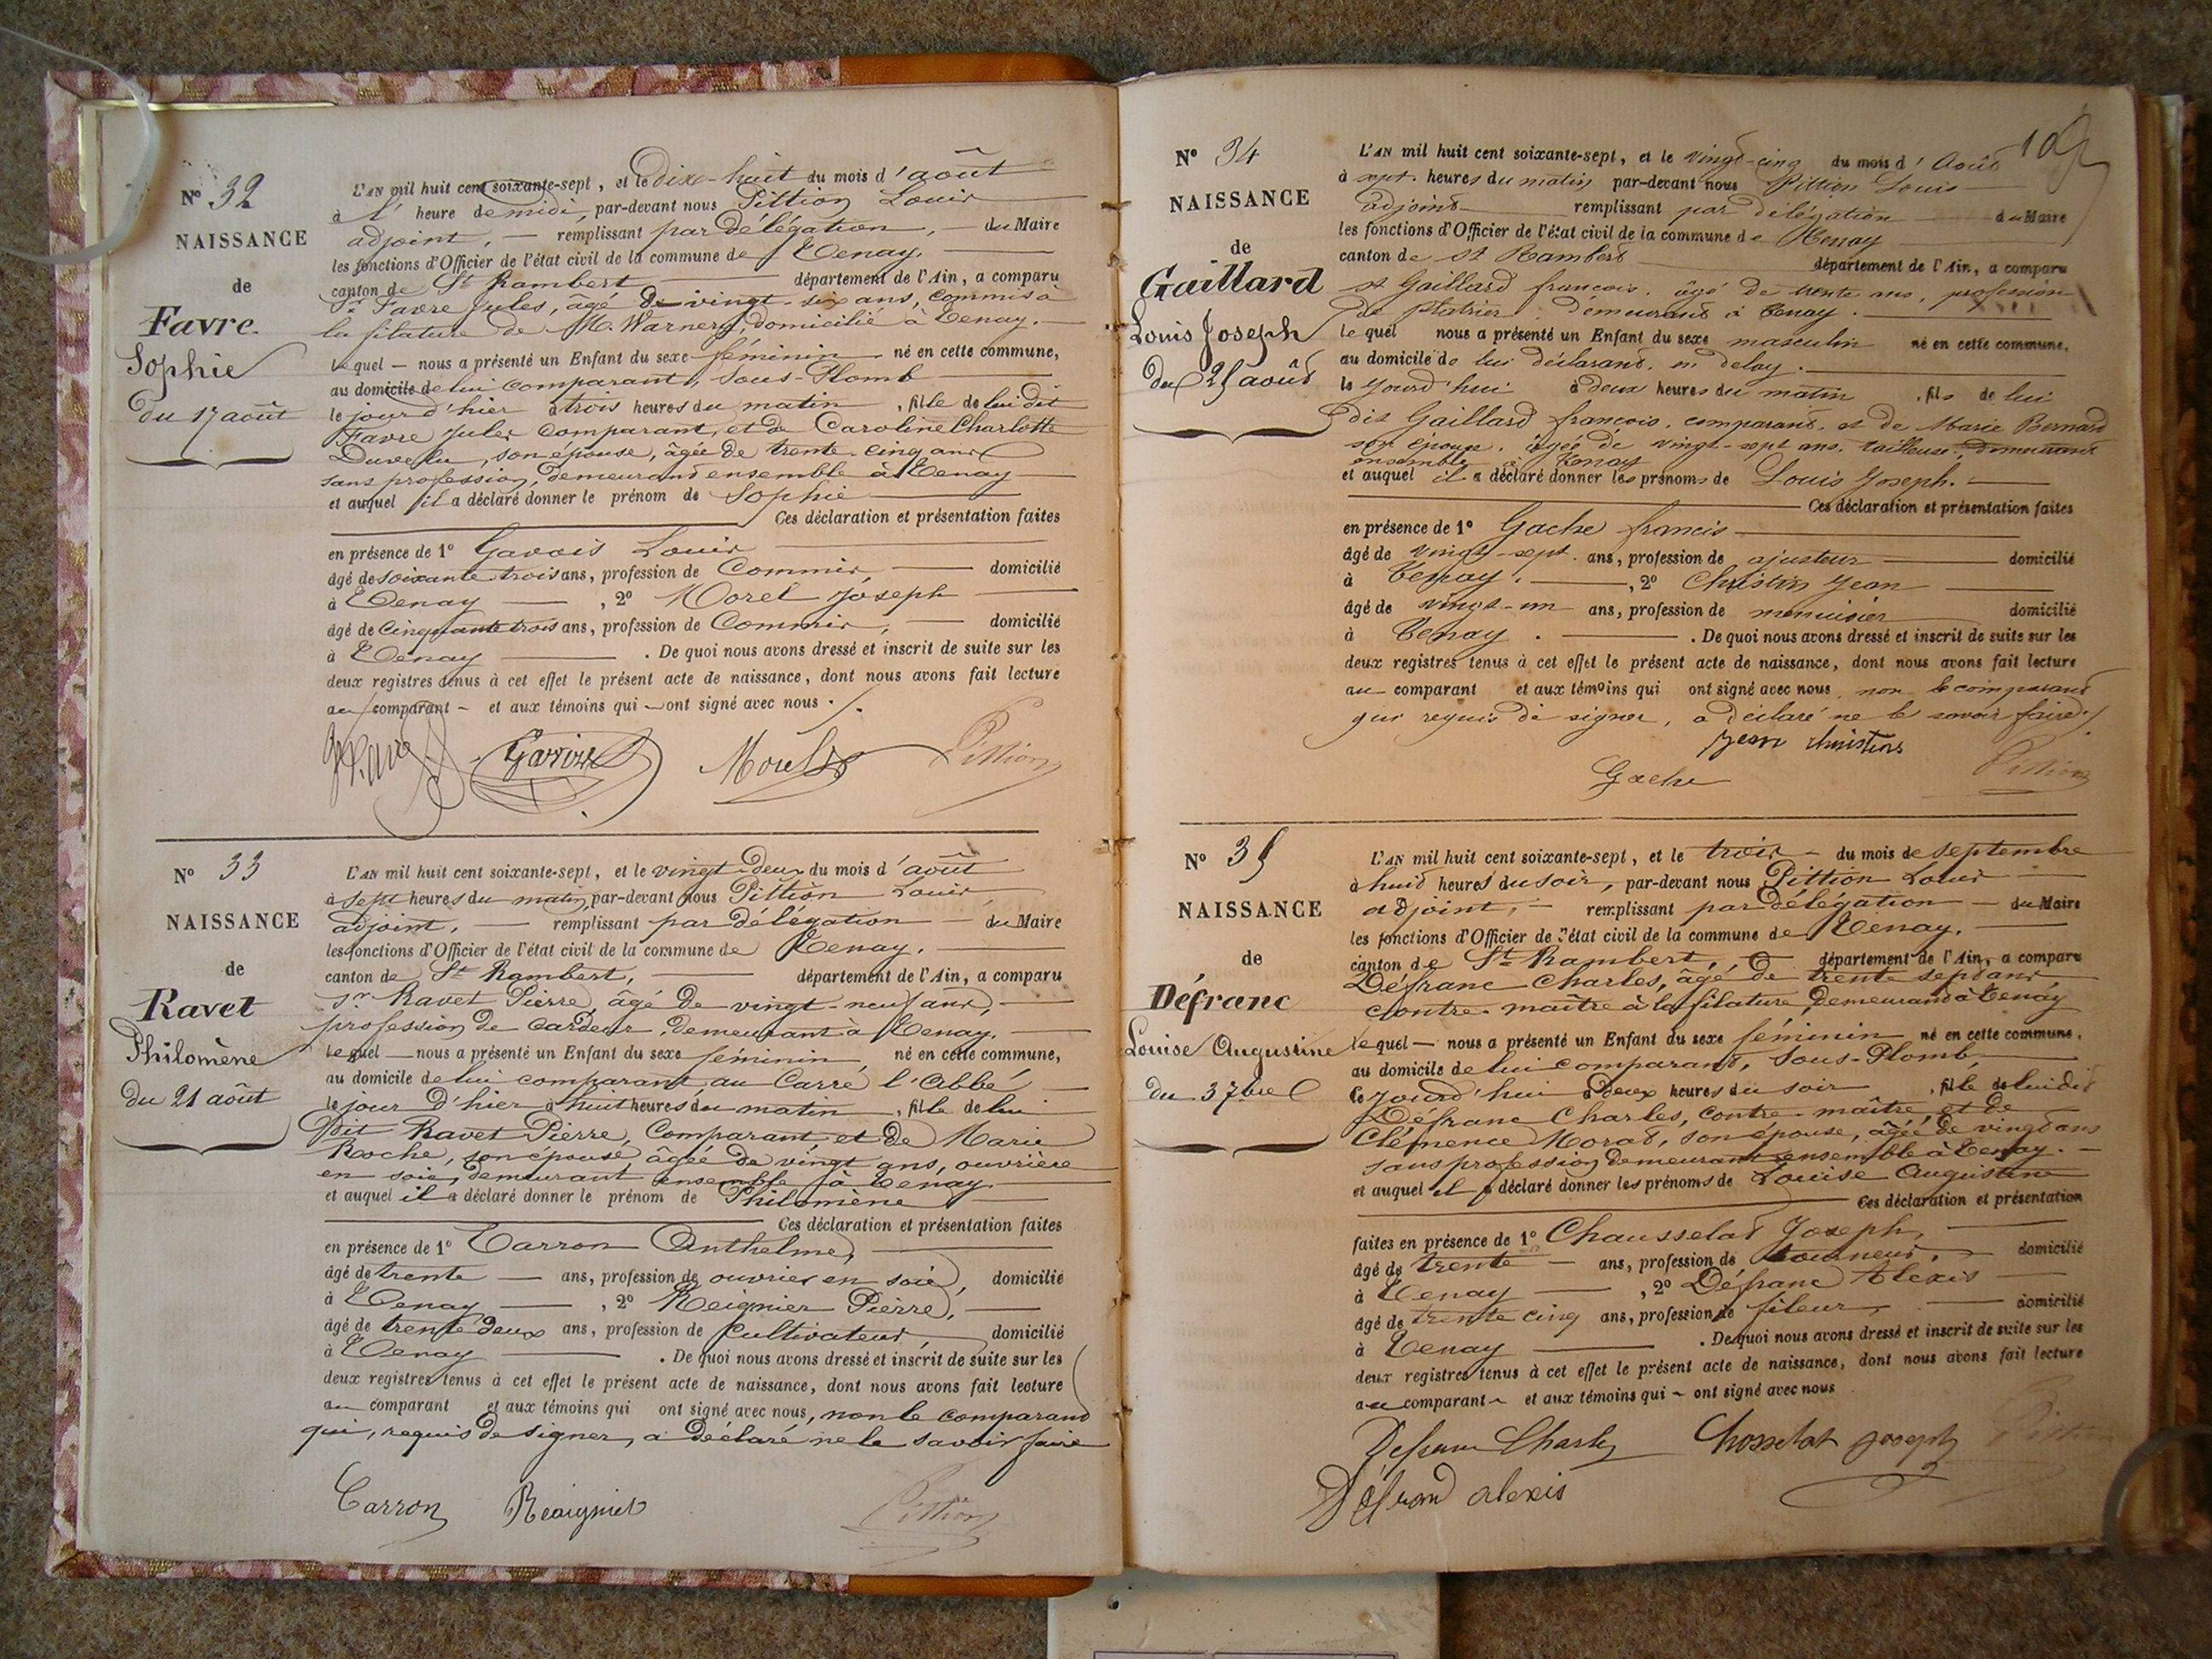 N° 32
NAISSANCE
de
Favre
Sophie
du 17 août
L'AN mil huit cent soixante-sept, et le Dix-huit du mois d'août
à l' heure de midi, par-devant nous Pittion Louis
adjoint, — remplissant par délégation, — du Maire
les fonctions d'Officier de l'état civil de la commune de Tenay,
canton de St Rambert — département de l'Ain, a comparu
Sr Favre Jules, âgé de vingt-six ans, commis à
la filature de M. Warnery, domicilié à Tenay. —
lequel — nous a présenté un Enfant du sexe féminin né en cette commune,
au domicile de lui comparant, Sous-Plomb
le jour d'hier à trois heures du matin, fille de lui dit
Favre Jules comparant, et de Caroline Charlotte
son épouse, âgée de trente-cinq ans
sans profession, demeurand ensemble à Tenay
et auquel il a déclaré donner le prénom de Sophie
Ces déclaration et présentation faites
en présence de 1° Gavois Louis
âgé de soixante trois ans, profession de Commis, — domicilié
à Tenay — , 2° Morel Joseph
âgé de cinquante trois ans, profession de Commis, — domicilié
à Tenay — . De quoi nous avons dressé et inscrit de suite sur les
deux registres tenus à cet effet le présent acte de naissance, dont nous avons fait lecture
au comparant — et aux témoins qui — ont signé avec nous .
Pittion
N° 33
NAISSANCE
de
Ravet
Philomène
du 21 août
L'AN mil huit cent soixante-sept, et le vingt-deux du mois d'août
à sept heures du matin, par-devant nous Pittion Louis
adjoint, — remplissant par délégation — du Maire
les fonctions d'Officier de l'état civil de la commune de Tenay,
canton de St Rambert, — département de l'Ain, a comparu
Sr Ravet Pierre, âgé de vingt-neuf ans, —
profession de cardeur, demeurant à Tenay. —
lequel — nous a présenté un Enfant du sexe féminin, né en cette commune,
au domicile de lui comparant au Carré l'Abbé
le jour d'hier à huit heures du matin, fille de lui
Dit Ravet Pierre, Comparant, et de Marie
Roche, son épouse âgée de vingt ans, ouvrière
en soie, demeurant ensemble à Tenay.
et auquel il a déclaré donner le prénom de Philomène
Ces déclaration et présentation faites
en présence de 1° Carron Anthelme, —
âgé de trente — ans, profession de ouvrier en soie, domicilié
à Tenay — , 2° Reignier Pierre, —
âgé de trente deux ans, profession de Cultivateur, domicilié
à Tenay — . De quoi nous avons dressé et inscrit de suite sur les
deux registres tenus à cet effet le présent acte de naissance, dont nous avons fait lecture
au comparant et aux témoins qui ont signé avec nous, non le comparand
qui, requis de signer, a déclaré ne le savoir faire
Carron Pittion
N° 34
NAISSANCE
de
Gaillard
Louis Joseph
du 25 août
L'AN mil huit cent soixante-sept, et le vingt-cinq du mois d'Août
à sept heures du matin par-devant nous Pittion Louis
adjoint — remplissant par délégation — du Maire
les fonctions d'Officier de l'état civil de la commune de Tenay
canton de St Rambert — département de l'Ain, a comparu
sr Gaillard françois, âgé de trente ans, profession
de platrier, demeurant à Tenay. —
lequel nous a présenté un Enfant du sexe masculin né en cette commune,
au domicile de lui déclarant, en delay. —
le jourd'hui à deux heures du matin, fils de lui
dit Gaillard françois, comparant, et de Marie Bernard
son épouse, âgée de vingt-sept ans, tailleuse, demeurant
ensemble à Tenay
et auquel il a déclaré donner les prénoms de Louis Joseph. —
Ces déclaration et présentation faites
en présence de 1° Gache francis —
âgé de vingt-sept ans, profession de ajusteur — domicilié
à Tenay. — , 2° Christin Jean
âgé de vingt-un ans, profession de menuisier — domicilié
à Tenay . — . De quoi nous avons dressé et inscrit de suite sur les
deux registres tenus à cet effet le présent acte de naissance, dont nous avons fait lecture
au comparant et aux témoins qui ont signé avec nous, non le comparant
qui requis de signer, a déclaré ne le savoir faire.
Jean christins
Gache Pittion
N° 35
NAISSANCE
de
Défranc
Louise Augustine
du 3 7bre
L'AN mil huit cent soixante-sept, et le trois — du mois de septembre
à huit heures du soir, par-devant nous Pittion Louis
adjoint, — remplissant par délégation — du Maire
les fonctions d'Officier de l'état civil de la commune de Tenay,
canton de St Rambert, — département de l'Ain, a comparu
Défranc Charles, âgé de trente sept ans
contre-maître à la filature, demeurand à Tenay
lequel — nous a présenté un Enfant du sexe féminin né en cette commune,
au domicile de lui comparant, Sous-Plomb,
le jourd'hui à deux heures du soir, fille de lui dit
Défranc Charles, contre-maître, et de
Clémence Morat, son épouse, âgée de vingt ans
sans profession demeurant ensemble à Tenay. —
et auquel il a déclaré donner les prénoms de Louise Augustine
Ces déclaration et présentation
faites en présence de 1° Chausselat Joseph, —
âgé de trente — ans, profession de tourneur, — domicilié
à Tenay — , 2° Défranc Alexis —
âgé de trente cinq ans, profession de fileur, — domicilié
à Tenay — . De quoi nous avons dressé et inscrit de suite sur les
deux registres tenus à cet effet le présent acte de naissance, dont nous avons fait lecture
au comparant — et aux témoins qui — ont signé avec nous
Chosselat Joseph
alexis